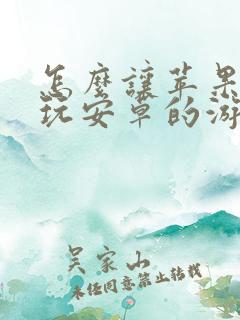 怎麼讓苹果
玩安卓的游
吴家山
未经同意禁止转载